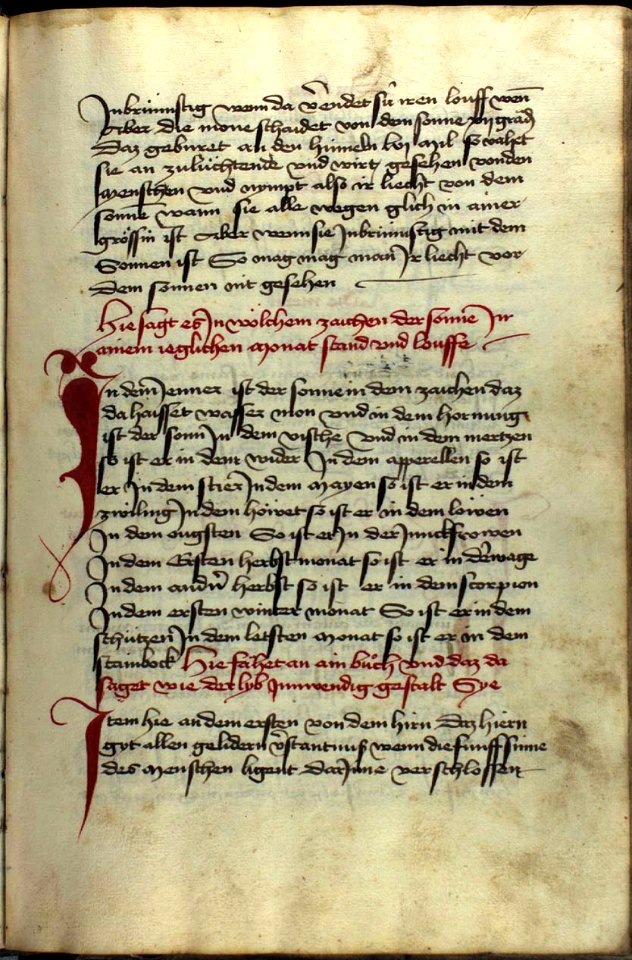 Inbrünnstig wenn da v̄endet sÿ iren louff wen̄
Aber die mone schaidet von dem sonne xij grad
Daz geburet an den himeln by mil so vahet
sie an zu lüchtende vnd wirt gesehen von den
menschen vnd nympt also ir liecht von dem
sonne wann sie alle wegen glich in ainer
grössin ist Aber wenn sie Inbrünnstig mit dem
Sonnen ist So mag mag man Ir liecht vor
dem sonnen nit gesehen
Hie sagt es In wölchem zaichen der sonne In
ainem ieglichen monat stand vnd louffe
In dem Jenner ist der sonne in dem zaichen daz
da haisset wasser mon vnd in dem hornung
ist der sonn In dem vische vnd in dem mertzen
so ist er in dem wider In dem apperellen so ist
er In dem stier In dem mayen so ist er in dem
zwiling In dem höwet so ist er in dem löwen
In dem ougsten So ist er In der Junckfrowen
In dem Ersten herbst monat so ist er in der wage
In dem andn̄ herbst so ist er in dem scorpion
In dem ersten winter monat So ist er in dem
schützen In dem letsten monat so ist er in dem
stainbock Hie fahet an ain buͦch vnd daz da
saget wie der lyb Innwendig gestalt Sye
Item hie an dem ersten von dem hirn Daz hirn
gyt allen gelidern v̄stantnus wenn die funff sinne
des menschen ligent dar Inne verschlossen